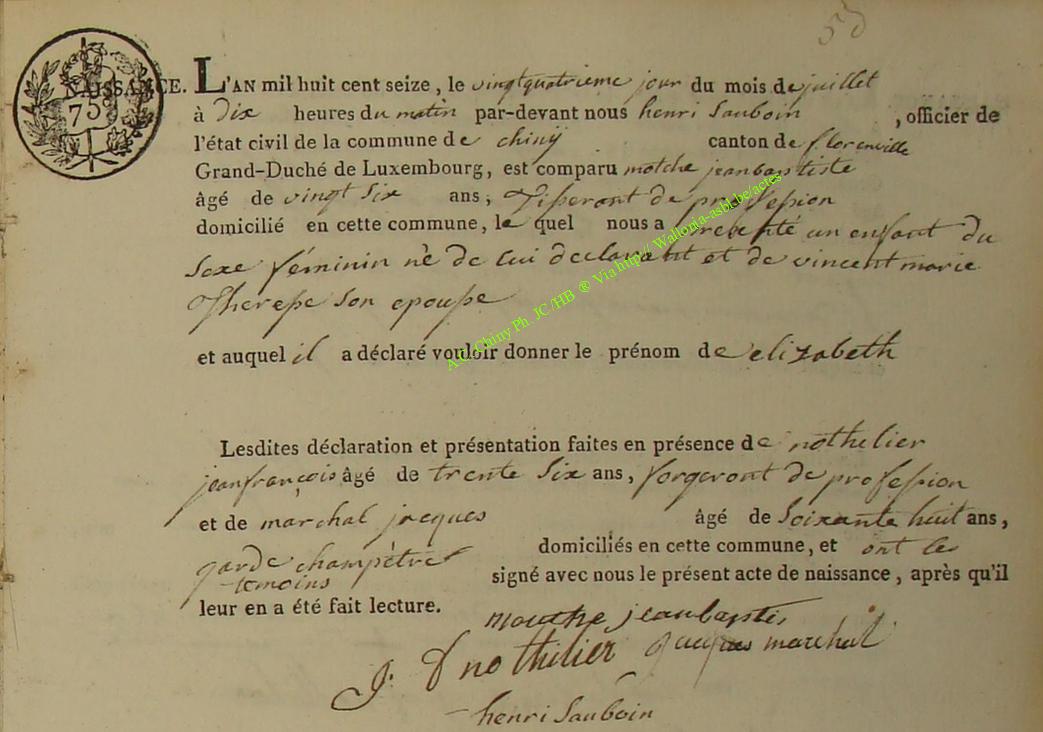 53
75
NAISSANCE. L'AN mil huit cent seize, le vingtquatrieme jour du mois de juillet
à Dix heures du matin par-devant nous henri Sauboin, officier de
l'état civil de la commune de chiny canton de florenville
Grand-Duché de Luxembourg, est comparu motche jeanbaptiste
âgé de vingt Six ans, Tisseront de profession
domicilié en cette commune, le quel nous a presenté un enfant du
Sexe féminin né de lui declarant et de vincent marie
Therese son epouse
et auquel il a déclaré vouloir donner le prénom de elizabeth
Lesdites déclaration et présentation faites en présence de nothelier
jeanfrançois âgé de trente Six ans, forgeront de profession
et de marchal jacques âgé de Soixante huit ans,
garde champêtre domiciliés en cette commune, et ont les
temoins signé avec nous le présent acte de naissance, après qu'il
leur en a été fait lecture.
mouthe jeanbaptis
J. f nothilier jacques marchal
henri Sauboin
Adm Chiny Ph. JC /HB ® Via http// Wallonia-asbl.be/actes